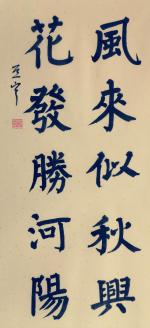 風來似秋興
花發勝河陽